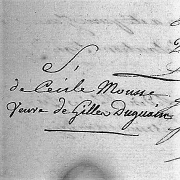 S.
de Cécile Mousse
Veuve de Gilles Duguain